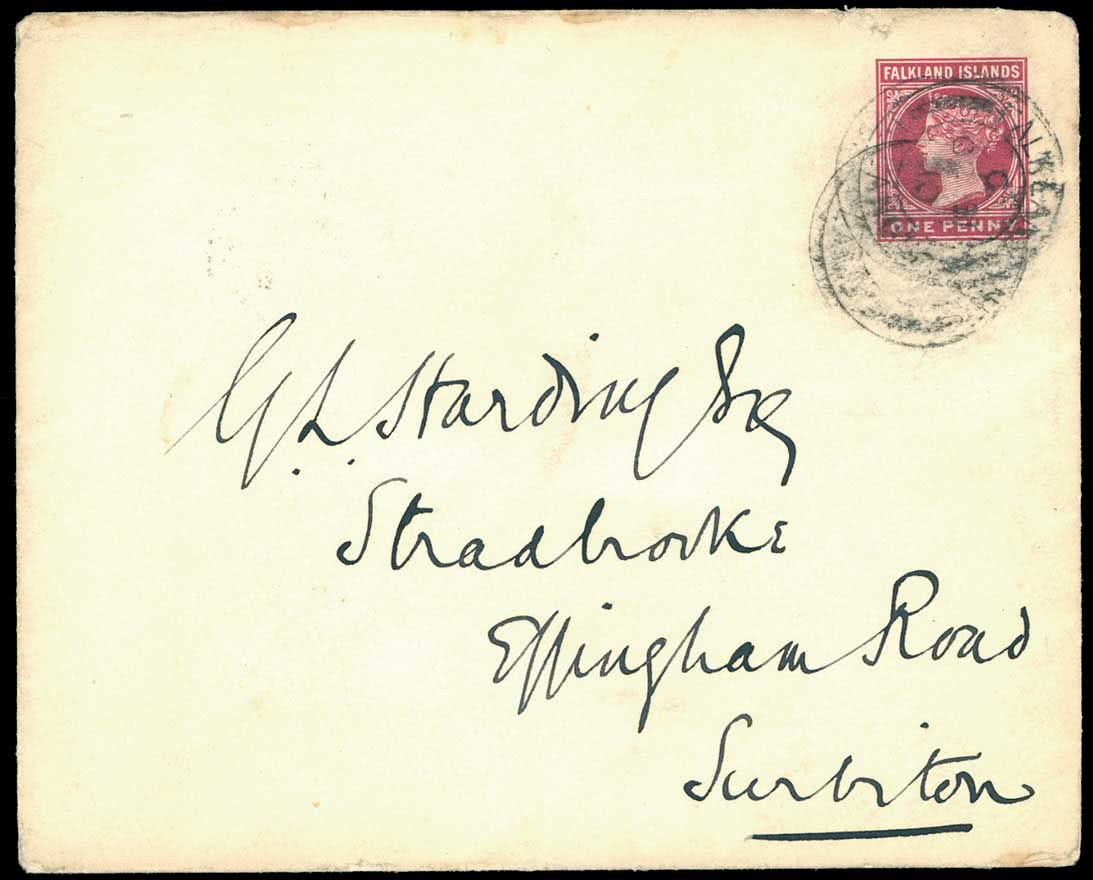 FALKLAND ISLANDS
ONE PENNY
G. L. Harding Esq
Stradbroke
Effingham Road
Surbiton